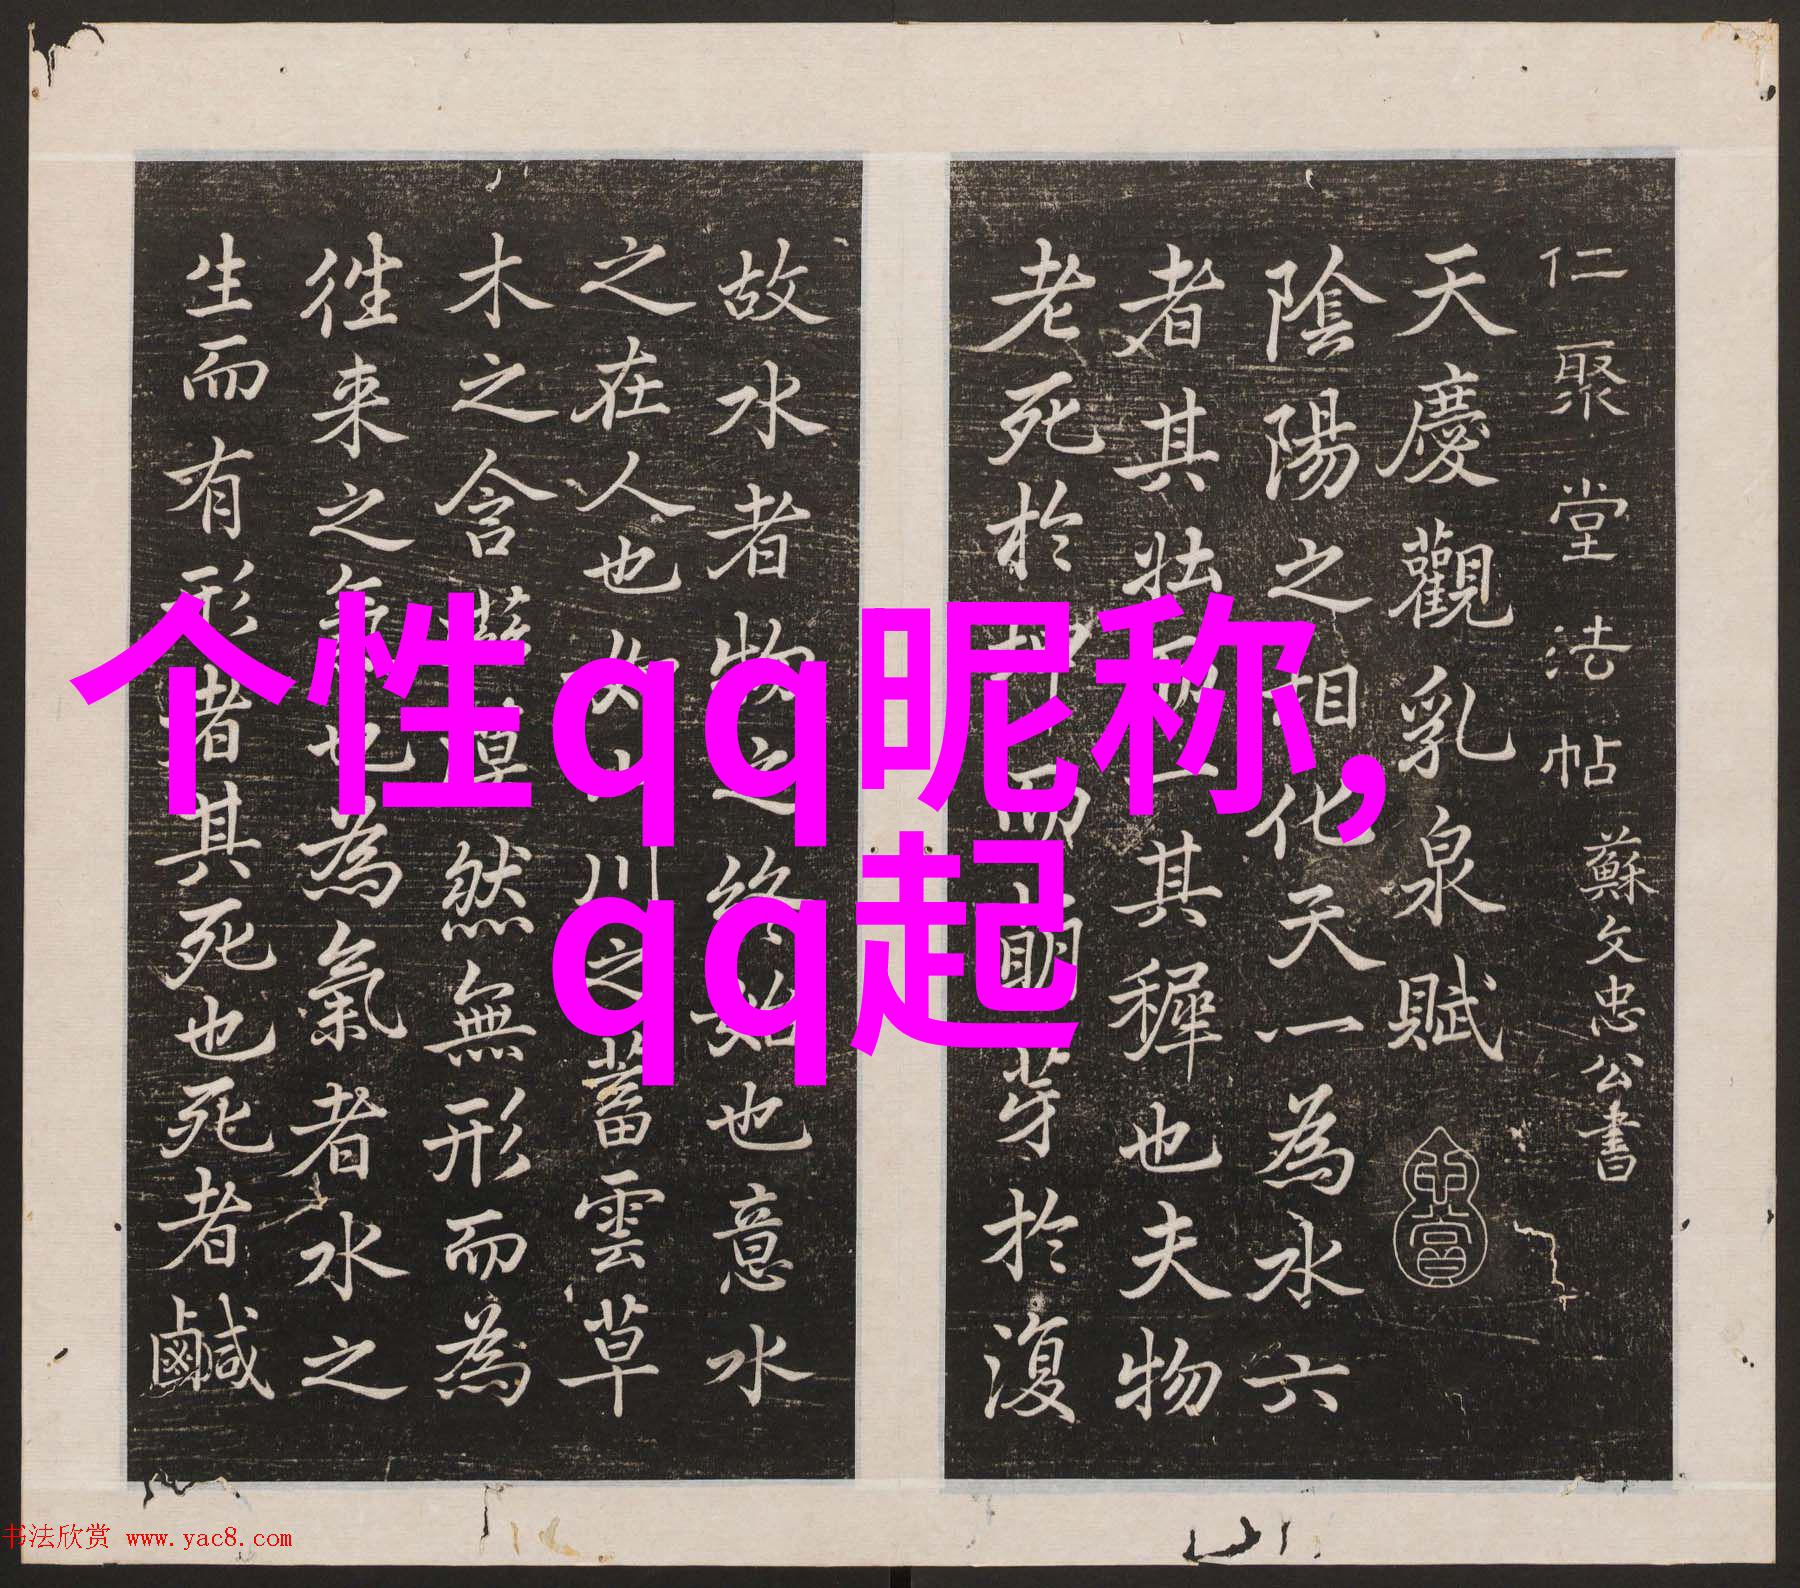 仁聚堂法帖 蘇文忠公書
天慶觀乳泉賦
陰陽之相化天一為水六
者其壯而一其穉也夫物
老死於坤而萌芽於復
故水者物之終始也意水
之在人也如山川之蓄雲草
木之含然無形而為
徃来之氣也為氣者水之
生而有形者其死也死者鹹
个性qq昵称,
qq起
书法欣赏 www.yac8.com